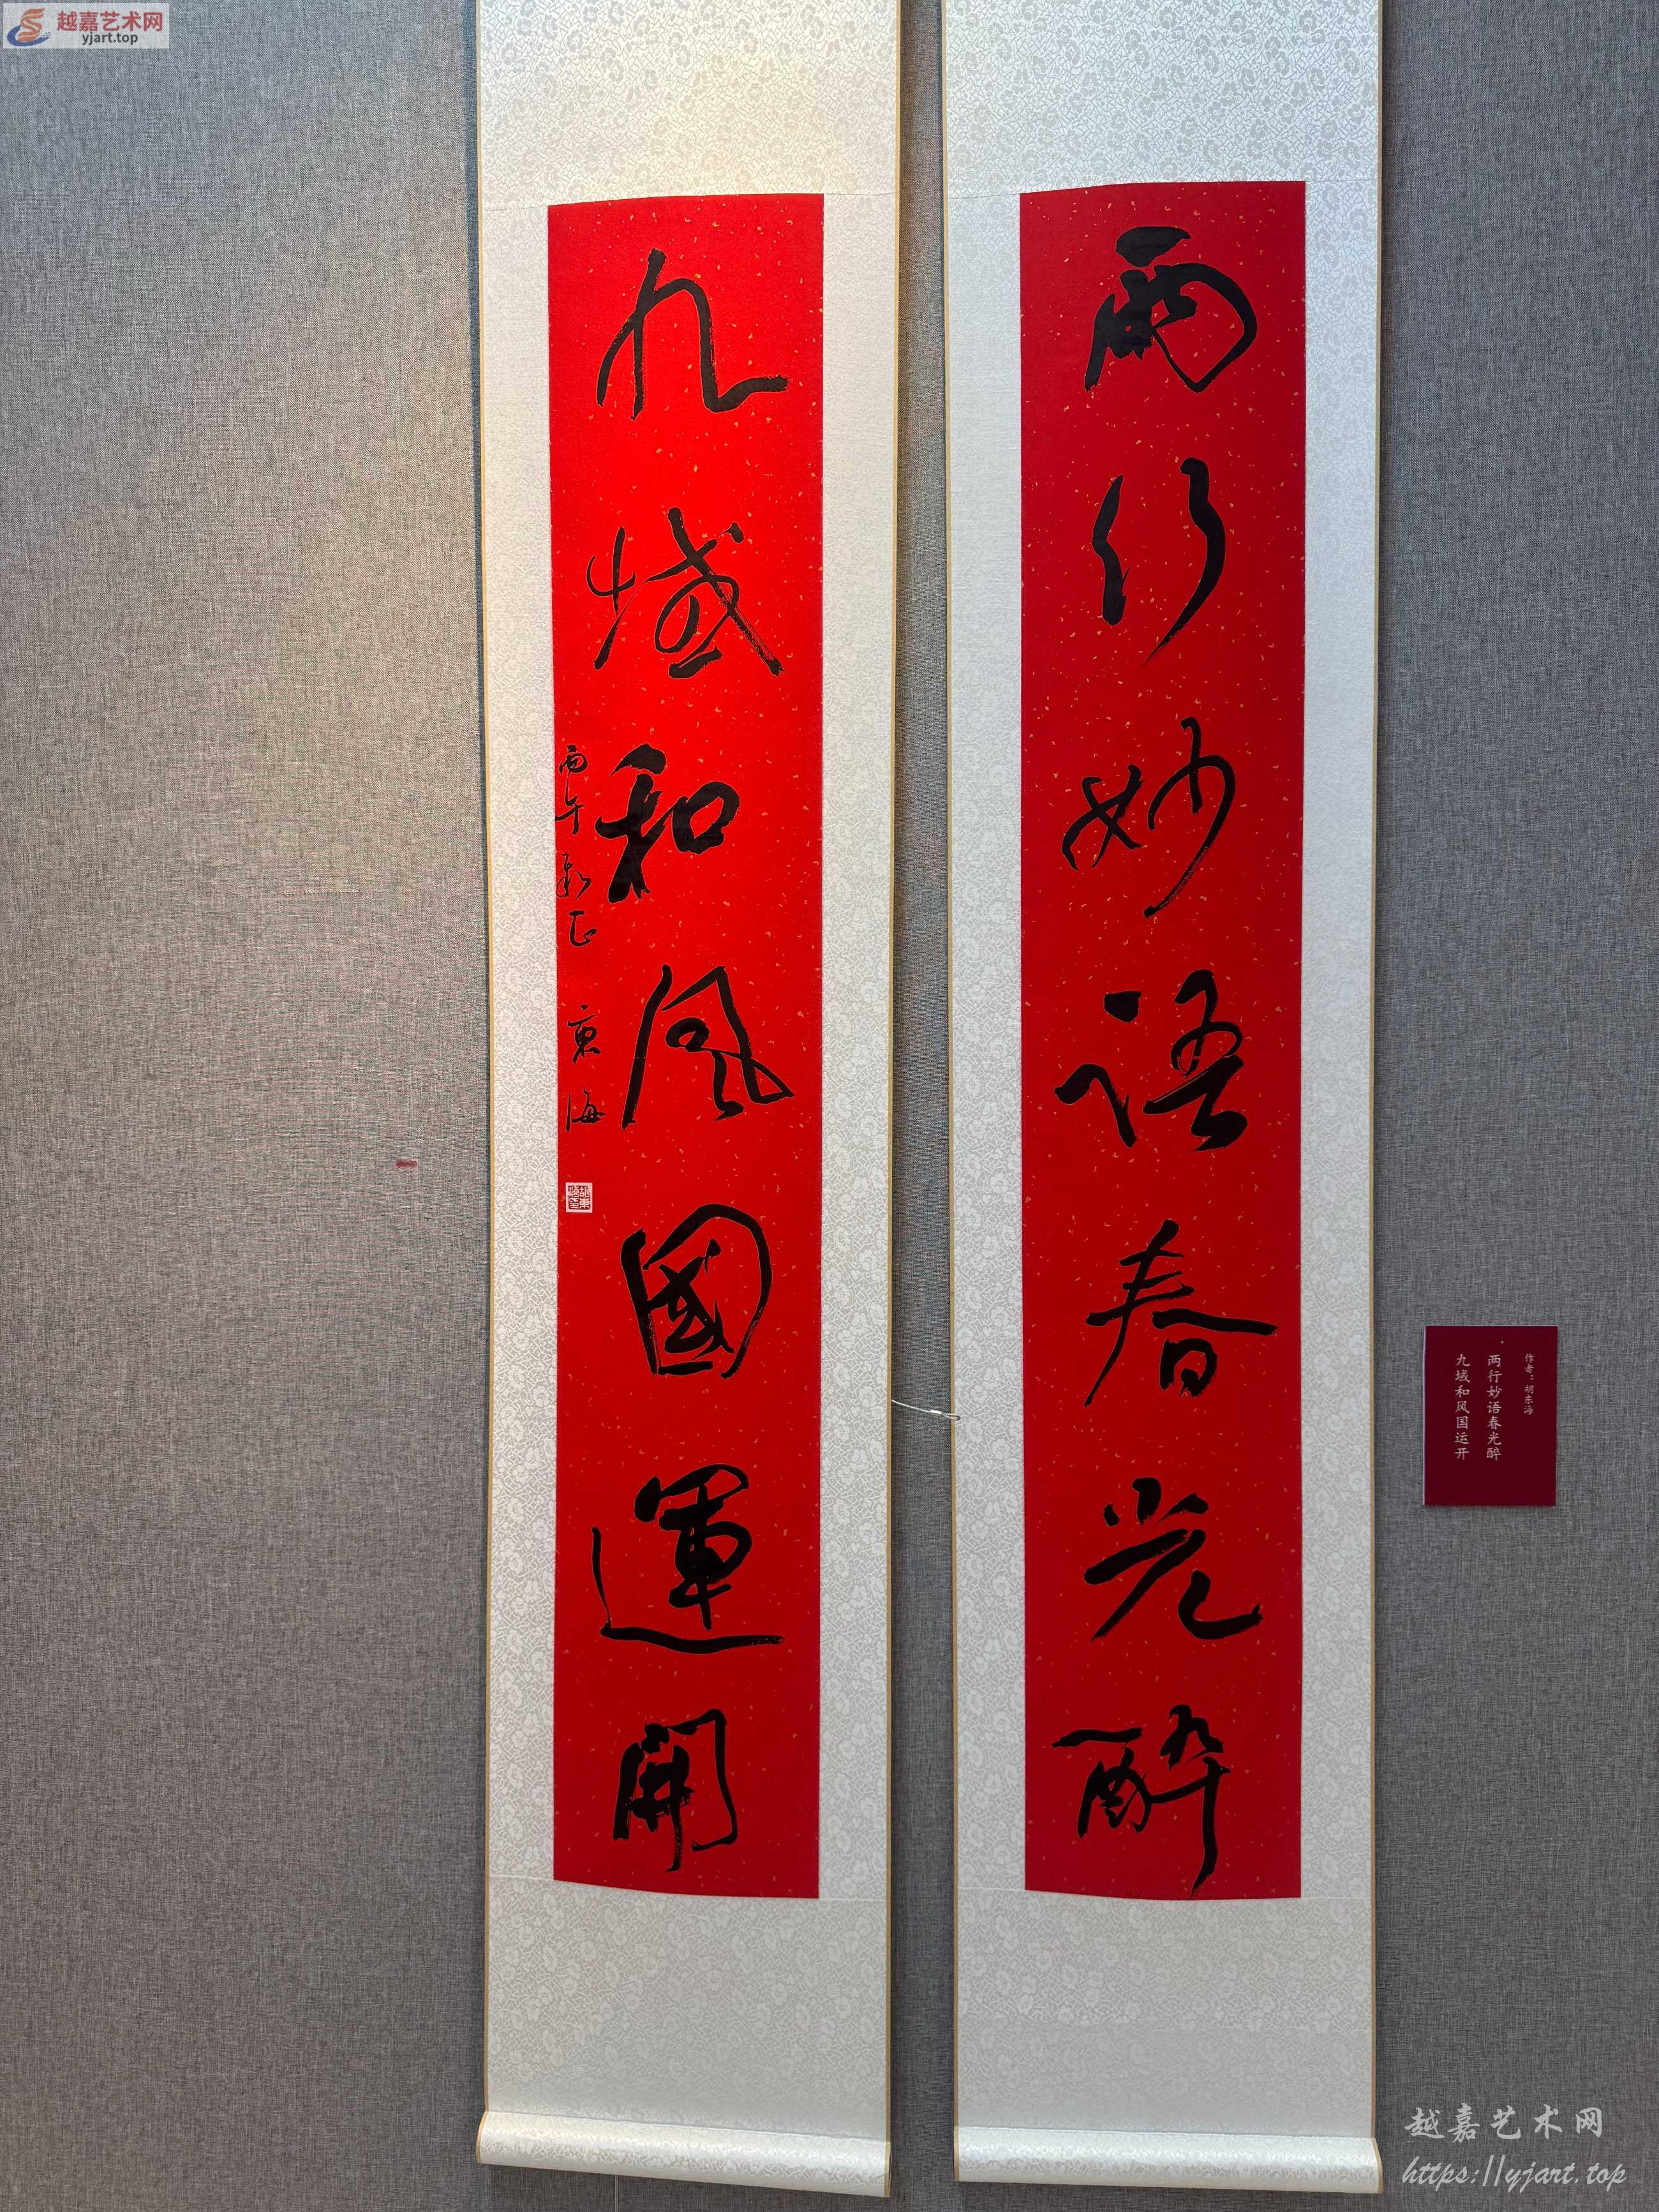 越嘉艺术网
yjart.top
兩行妙語春光醉
九域和風國運開
丙午新正 東海
作者：胡东海
两行妙语春光醉
九域和风国运开
越嘉艺术网
https://yjart.top